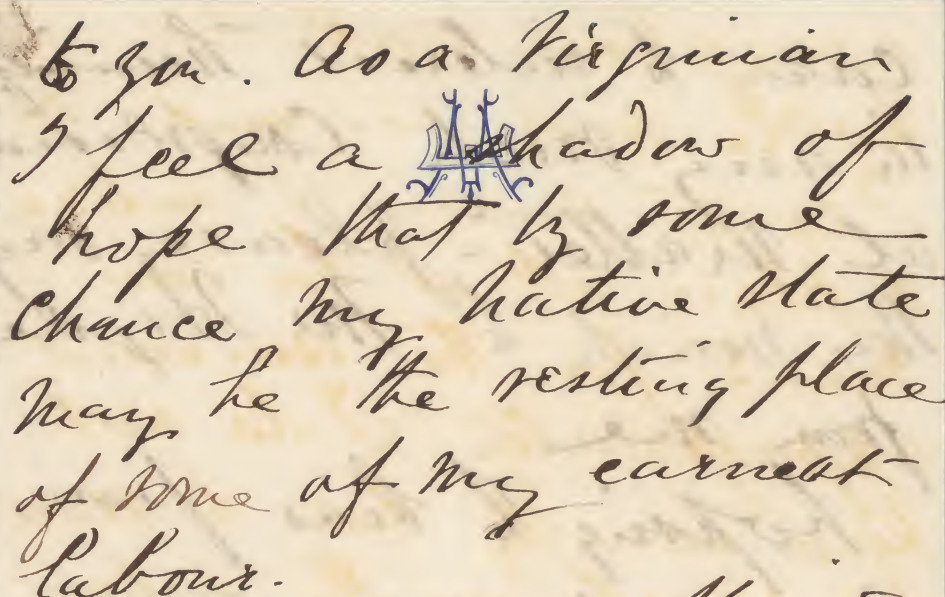 to you. As a Virginian
I feel a shadow of
hope that by some
chance my native state
may be the resting place
of some of my earnest
labour.